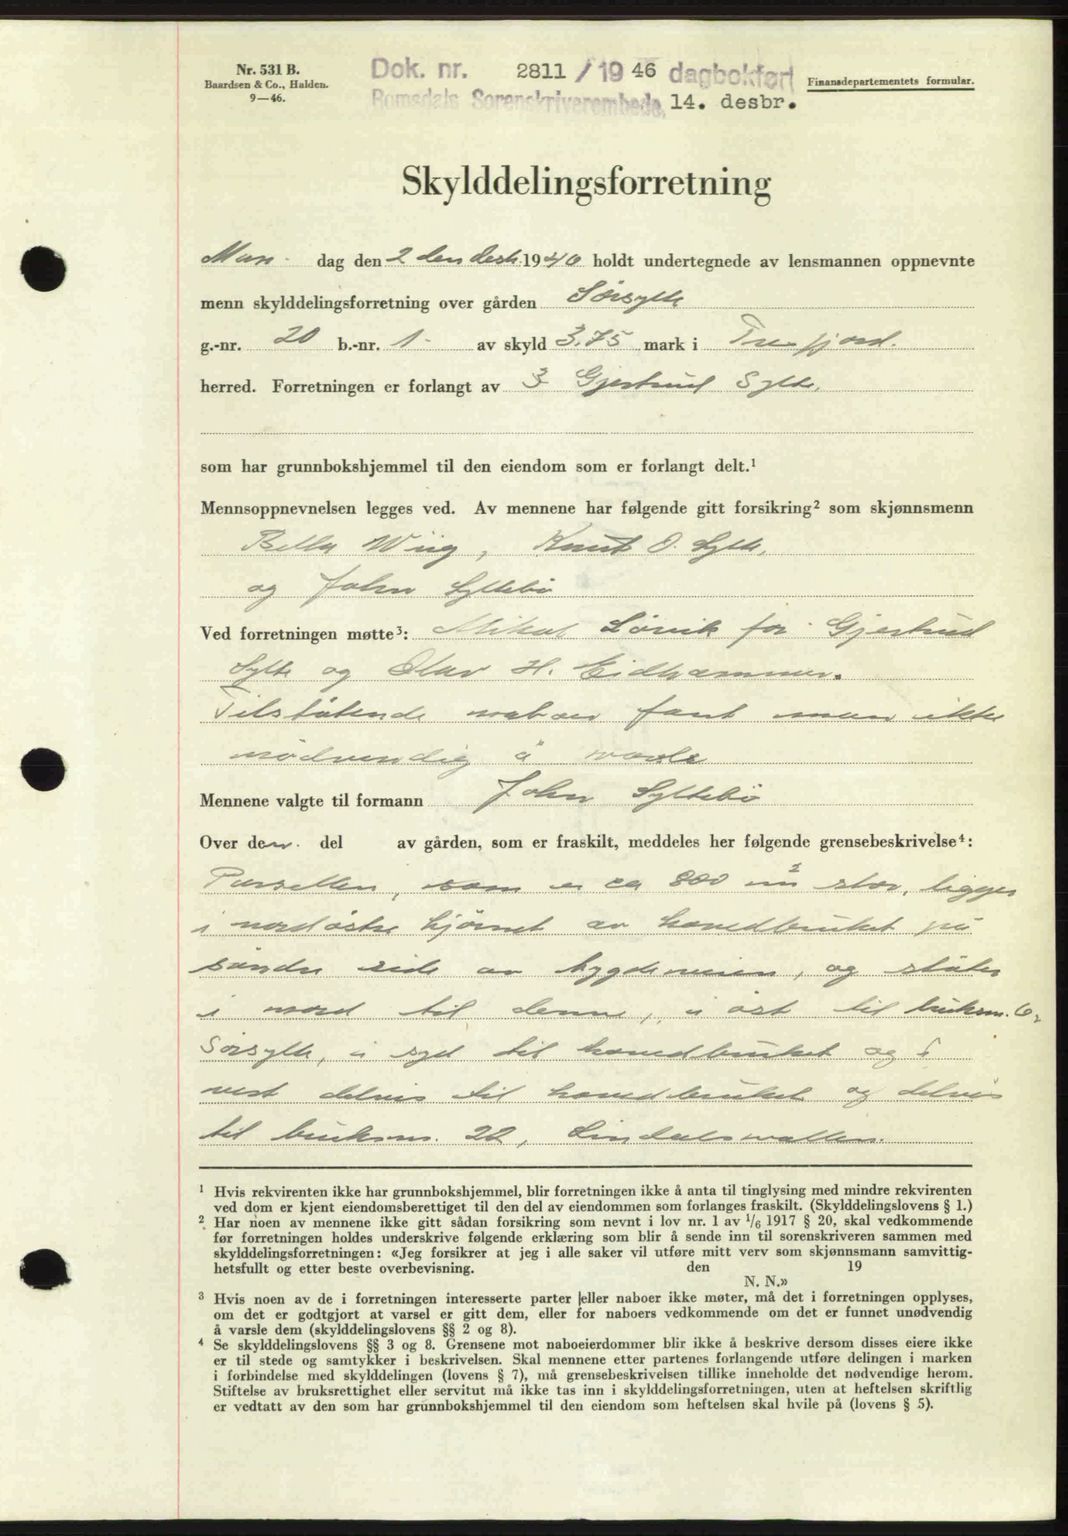 Nr. 531 B.
Baardsen & Co., Halden.
9—46.
Dok. nr. 2811 / 19 46 dagbokført
Romsdals Sorenskriverembede, 14. desbr.
Finansdepartementets formular.
Skylddelingsforretning
Man- dag den 2 den desb. 1946 holdt undertegnede av lensmannen oppnevnte
menn skylddelingsforretning over gården Sørsylte
g.-nr. 20 b.-nr. 1- av skyld 3.75 mark i Tresfjord.
herred. Forretningen er forlangt av Gjertrud Sylte.
som har grunnbokshjemmel til den eiendom som er forlangt delt.¹
Mennsoppnevnelsen legges ved. Av mennene har følgende gitt forsikring² som skjønnsmenn
Wiig, Knut O. Sylte,
og John Syltebø
Ved forretningen møtte³: Mikal Løvik for Gjertrud
Sylte og Olav H. Eidhammer.
Tilstøtende naboer fant man ikke
nødvendig å varsle
Mennene valgte til formann John Syltebø
Over den. del av gården, som er fraskilt, meddeles her følgende grensebeskrivelse⁴:
Parsellen, som er ca 800 m² stor, ligger
i nordøstre hjørnet av hovedbruket på
søndre side av bygdeveien, og støter
i nord til denne, i øst til bruksnr. 6,
Sørsylte, i syd til hovedbruket og i
vest delvis til hovedbruket og delvis
til bruksnr. 22, Lindalsvollen.
¹ Hvis rekvirenten ikke har grunnbokshjemmel, blir forretningen ikke å anta til tinglysing med mindre rekvirenten
ved dom er kjent eiendomsberettiget til den del av eiendommen som forlanges fraskilt. (Skylddelingslovens § 1.)
² Har noen av mennene ikke gitt sådan forsikring som nevnt i lov nr. 1 av 1/6 1917 § 20, skal vedkommende
før forretningen holdes underskrive følgende erklæring som blir å sende inn til sorenskriveren sammen med
skylddelingsforretningen: «Jeg forsikrer at jeg i alle saker vil utføre mitt verv som skjønnsmann samvittig-
hetsfullt og etter beste overbevisning. den 19
N. N.»
³ Hvis noen av de i forretningen interesserte parter eller naboer ikke møter, må det i forretningen opplyses,
om det er godtgjort at varsel er gitt dem, eller for naboers vedkommende om det er funnet unødvendig
å varsle dem (skylddelingslovens §§ 2 og 8).
⁴ Se skylddelingslovens §§ 3 og 8. Grensene mot naboeierdommer blir ikke å beskrive dersom disses eiere ikke
er til stede og samtykker i beskrivelsen. Skal mennene etter partenes forlangende utføre delingen i marken
i forbindelse med skylddelingen (lovens § 7), må grensebeskrivelsen tillike inneholde det nødvendige herom.
Stiftelse av bruksrettighet eller servitut må ikke tas inn i skylddelingsforretningen, uten at heftelsen skriftlig
er vedtatt av den som har grunnbokshjemmel til den eiendom som heftelsen skal hvile på (lovens § 5).